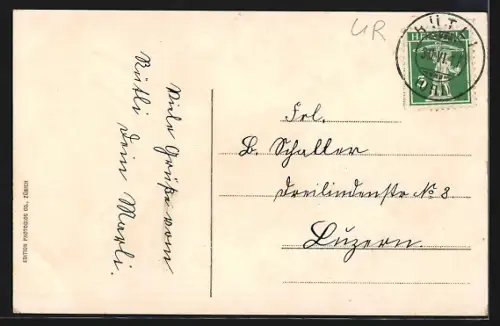 UR
HELVETIA
Viele Grüße vom
Rütli dein Marli.
Frl.
B. Schaller
Dreilindenstr No 3
Luzern.
EDITION PHOTOGLOB CO., ZÜRICH